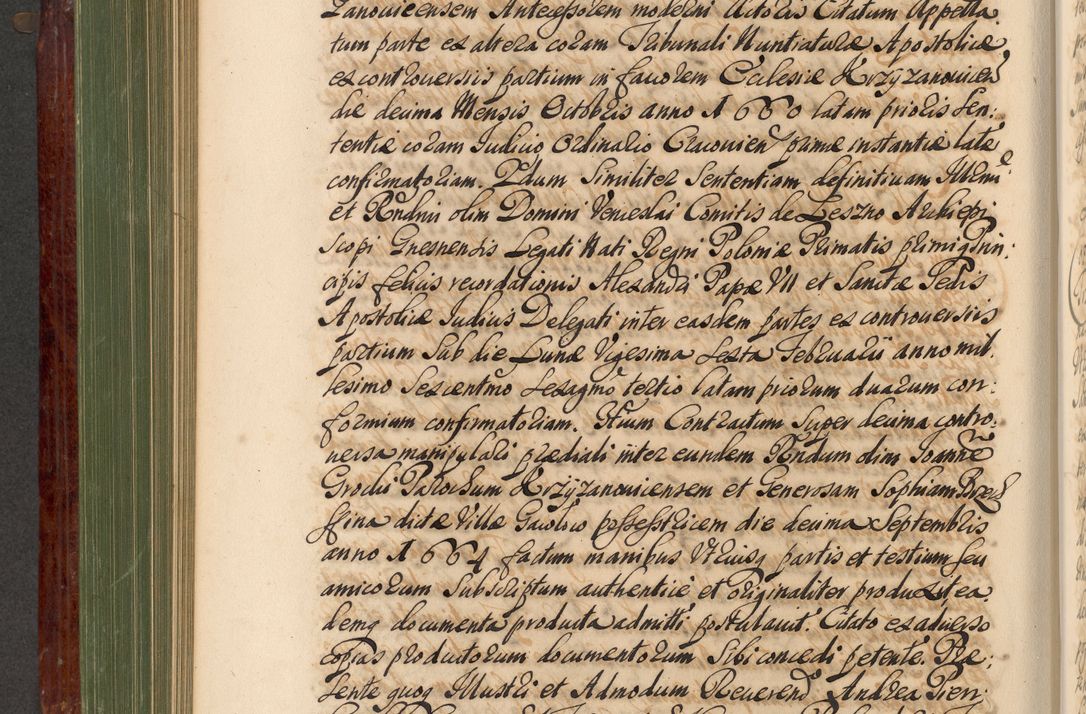 zanouicensem Antecessorem moderni Actoris Citatum Appella
tum parte ex altera coram Tribunali Nuntiaturæ Apostolicæ
ex controuersiis partium in fauorem Ecclesiæ Krzyzanouicen
die decima Mensis Octobris anno 1660 latam prioris sen:
tentiæ coram Iudicio Ordinario Cracouien primæ instantiæ latæ
confirmatoriam. 2dum Similiter Sententiam definitiuam Illmi
et Rndmi olim Domini Venceslai Comitis de Leszno Archiepi
scopi Gnesnensis Legati Nati Regni Poloniæ Primatis primiq Prin:
cipis felicis recordationis Alexandri Papæ VII et Sanctæ Sedis
Apostolicæ Iudicis Delegati inter easdem partes ex controuersiis
partium sub die Lunæ Vigesima sexta Februarii anno mil
lesimo Sexcentmo sexagmo tertio latam priorum duarum con:
formium confirmatoriam. 3tium Contractum super decima contro:
uersa manipulari prædiali inter eundem Rndum olim Ioannē
Grocki Parochum Krzyzanouicensem et Generosam Sophiam
dictæ Villæ possessricem die decima Septembris
anno 1664 factum manibus Vtriusq partis et testium seu
amicorum Subscriptum authenticè et originaliter produxit ea
demq documenta producta admitti postulauit. Citato ex aduerso
copias productorum documentorum sibi concedi petente. Præ:
sente quoq Illustri et Admodum Reuerend Andrea Pien